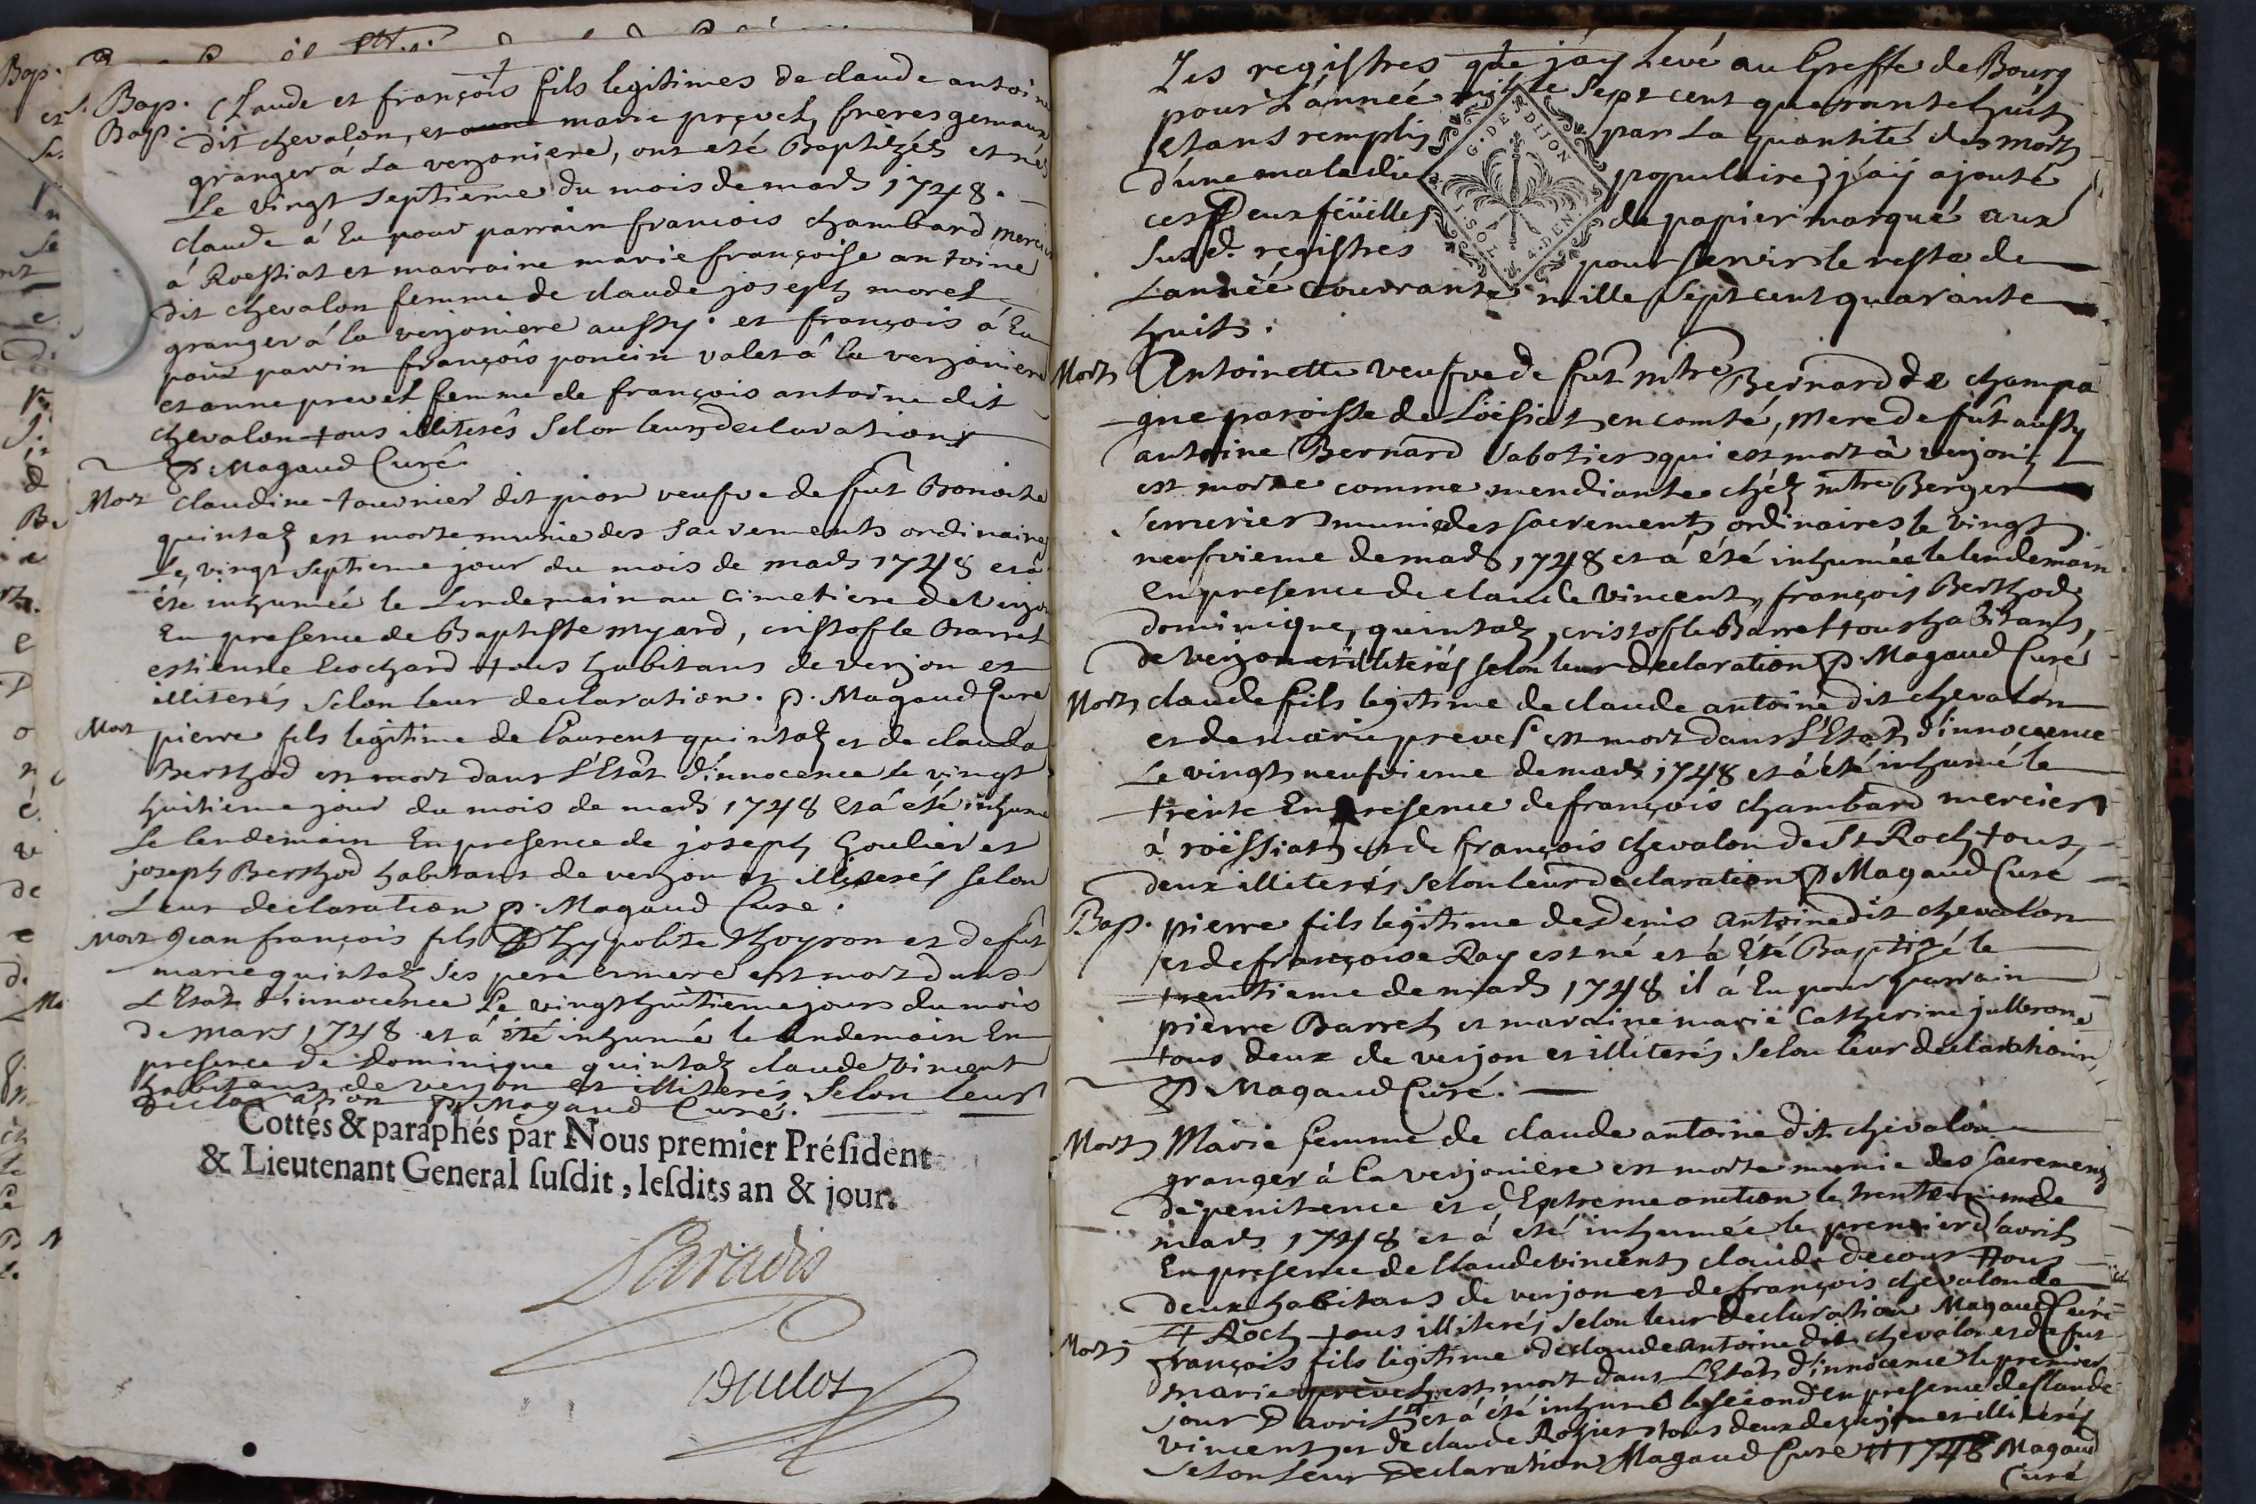 Bap. Claude et françois fils legitimes de claude antoine
Bap. dit chevalon, et marie prevet, freres gemaux
granger á La verjoniere, ont eté Baptizés et nés
Le vingt septieme du mois de mars 1748.
claude á Eu pour parrain francois chambard mercier
á Roessiat et marraine marie françoise antoine
dit chevalon femme de claude joseph morel
granger á la verjoniere aussy. et françois á Eu
pour parrin françois poncin valet á la verjoniere
et anne prevet femme de françois antoine dit
chevalon tous illiterés selon leurs declarations
P. Magaud Curé
Mort claudine tournier dit pion veufve de fut Benoite
quintaz est morte munie des sacrements ordinaires
Le vingt septieme jour du mois de mars 1748 et á
été inhumée le Lendemain au cimetiere de Verjon
En presence de Baptiste myard, cristofle Barret
estienne Cochard tous habitans de verjon et
illiterés selon leur declaration. P. Magaud Curé
Mort pierre fils legitime de Laurent quintaz et de clauda
Berthod est mort dans L'Etat d'innocence le vingt
huitieme jour du mois de mars 1748 et á eté inhumé
Le lendemain En presence de joseph Goulier et
joseph Berthod habitans de verjon et illiterés selon
Leur declaration P. Magaud Curé.
Mort Jean françois fils D'hypolite thoyron et de fut
marie quintaz ses pere et mere est mort dans
L'Etat d'innocence Le vingt huitieme jour du mois
de mars 1748 et á été inhumé le lendemain En
presence de Dominique quintaz claude vincent
habitans de verjon et illiterés selon leur
declaration P. Magaud Curé.
Cottés & paraphés par Nous premier Préſident
& Lieutenant General ſuſdit, leſdits an & jour.
Paradis
Duclos
Les registres que j'ay Levé au Greffe de Bourg
pour L'année mille sept cent quarante huit
etans remplis par La quantité des morts
d'une maladie populaire, j'aÿ ajouté
ces Deux feüilles de papier marqué aux
susd. registres pour servir le reste de
L'année courante mille sept cent quarante
huit.
G. DE DIJON
1. SOL
4. DEN.
Mort Antoinette veufve de fut mtre Bernard de champa
gne paroisse de Loësiat en comté, mere de fut aussy
antoine Bernard sabotier qui est mort á verjon
est morte comme mendiante chéz mtre Berger
serrurier munie des sacrements ordinaires le vingt
neufvieme de mars 1748 et á été inhumée le lendemain
En presence de claude vincent, françois Berthod,
dominique quintaz, cristofle Barret tous habitans,
de verjon et illiterés selon leur declaration P Magaud Curé
Mort claude fils legitime de claude antoine dit chevalon
et de marie prevet est mort dans L'Etat d'innocence
Le vingt neufvieme de mars 1748 et á été inhumé le
trente En presence de françois chambard mercier
á roëssiat et de françois chevalon de St Roch tous
deux illiterés selon leur declaration P Magaud Curé
Bap. pierre fils legitime de denis antoine dit chevalon
et de françoise Ray est né et á Eté Baptizé le
trentieme de mars 1748 il á Eu pour parrain
pierre Barret et maraine marie Catherine julleron
tous deux de verjon et illiterés selon leur declaration
P. Magaud Curé.
Mort Marie femme de claude antoine dit chevalon
granger á la verjoniere est morte munie des sacrements
de penitence et d'Extreme onction le trente un de
mars 1748 et á eté inhumée le premier d'avril
En presence de Claude vincent claude decour tous
deux habitans de verjon et de françois chevalon de
St Roch tous illiterés selon leur declaration Magaud Curé
Mort françois fils legitime de claude antoine dit chevalon et de fut
marie prevet est mort dans L'Etat d'innocence le premier
jour D'avril et á été inhumé le second en presence de Claude
vincent et de claude Rozier tous deux de verjon et illiterés
selon leur declaration Magaud Curé 1748 Magaud
Curé